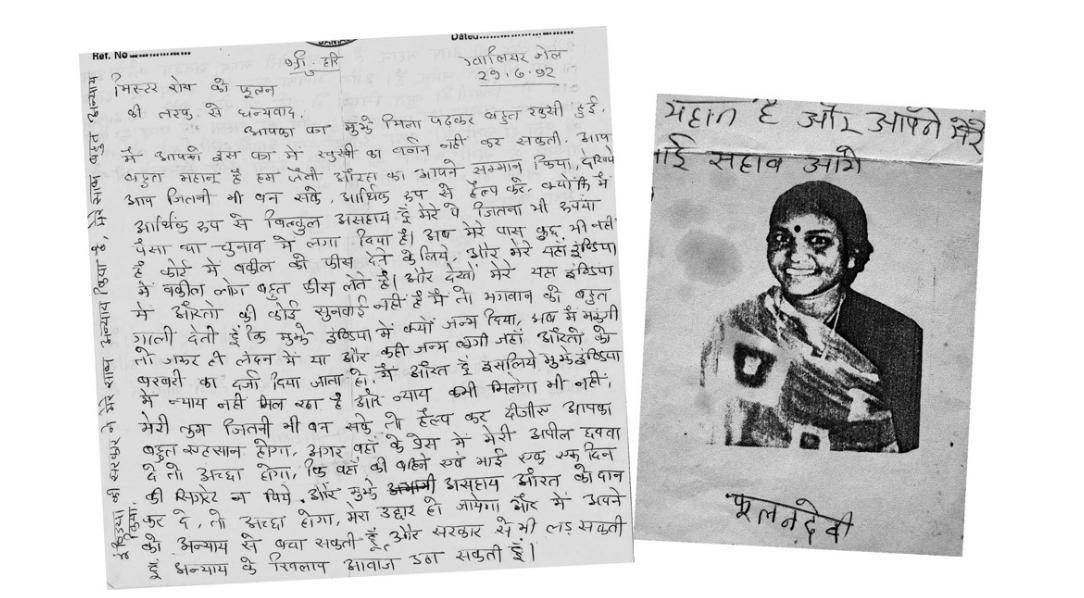 Ref. No
Dated
श्री हरि
ग्वालियर जेल
29.6.92
मिस्टर रोय को फूलन
की तरफ से धन्यवाद.
आपका का मुझे मिला पढ़कर बहुत रवुसी हुई.
मैं आपको इस का में रवुसी का वर्नन नहीं कर सकती. आप
बहुत महान् है हम जैसी औरतो का आपने सम्मान किया, देखिये
आप जितनी भी बन सके. आर्थिक रुप से हैल्प करे. क्योंकि मैं
आर्थिक रुप से बिल्कुल असहाय हूँ मेरे पे जितना भी रुपया
पैसा था चुनाव में लगा दिया है। अब मेरे पास कुछ भी नहीं
है कोर्ट में वकील को फीस देने के लिये. और मेरे यहाँ इण्डिया
में वकील लोग बहुत फीस लेते है। और देखो मेरे यहा इण्डिया
में औरतो की कोई सुनवाई नहीं है मैं तो भगवान को बहुत
गाली देती हूँ कि मुझे इण्डिया में क्यों जन्म दिया, अब मैं मरूंगी
तो जरूर ही लंदन में या और कही जन्म लूंगी जहाँ औरतो को
बरबरी का दर्जा दिया जाता हो. मैं औरत हूँ इसलिये मुझे इण्डिया
में न्याय नही मिल रहा है और न्याय कभी मिलेगा भी नहीं,
मेरी तुम जितनी भी बन सके तो हैल्प कर दीजीए आपका
बहुत एहसान होगा, अगर वहाँ के प्रेस में मेरी अपील छपवा
दे तो अच्छा होगा, कि वहाँ की बहिने एवं भाई एक एक दिन
की सिगरेट न पिये. और मुझे असहाय औरत को दान
कर दे, तो अच्छा होगा, मेरा उद्दार हो जायेगा और में अपने
को अन्याय से बचा सकती हूँ, और सरकार से भी लड़ सकती
हूँ अन्याय के खिलाप आवाज उठा सकती हूँ।
इण्डिया की सरकार ने मेरे साथ अन्याय किया है, मेरे साथ बहुत अन्याय
किया.
महान है और आपने मेरे
भाई सहाव आगे
फूलन देवी